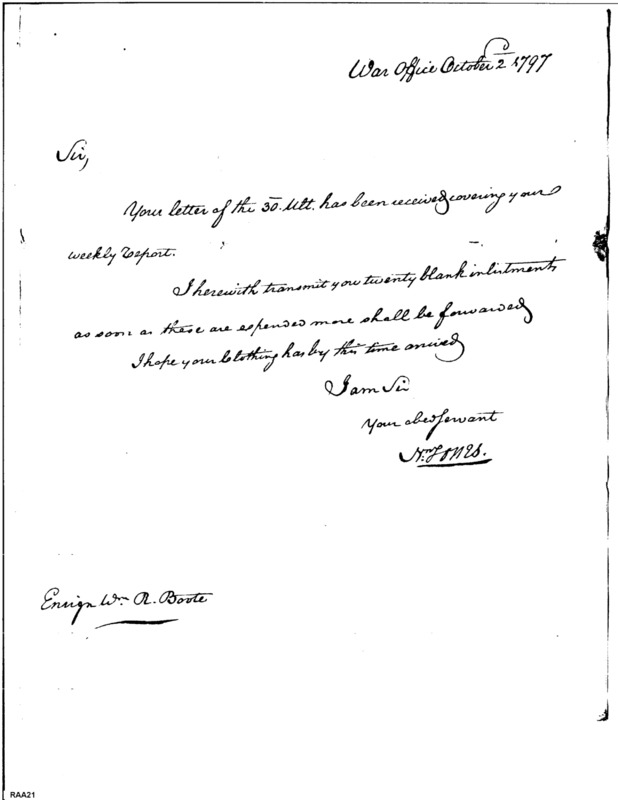 War Office October 2 1797
Sir,
Your letter of the 30. Ult. has been received covering your
weekly Report.
I herewith transmit you twenty blank inlistments
as soon as these are expended more shall be forwarded
I hope your Clothing has by this time arrived
I am Sir
Your obed Servant
Wm Jones.
Ensign Wm R. Boote
RAA21